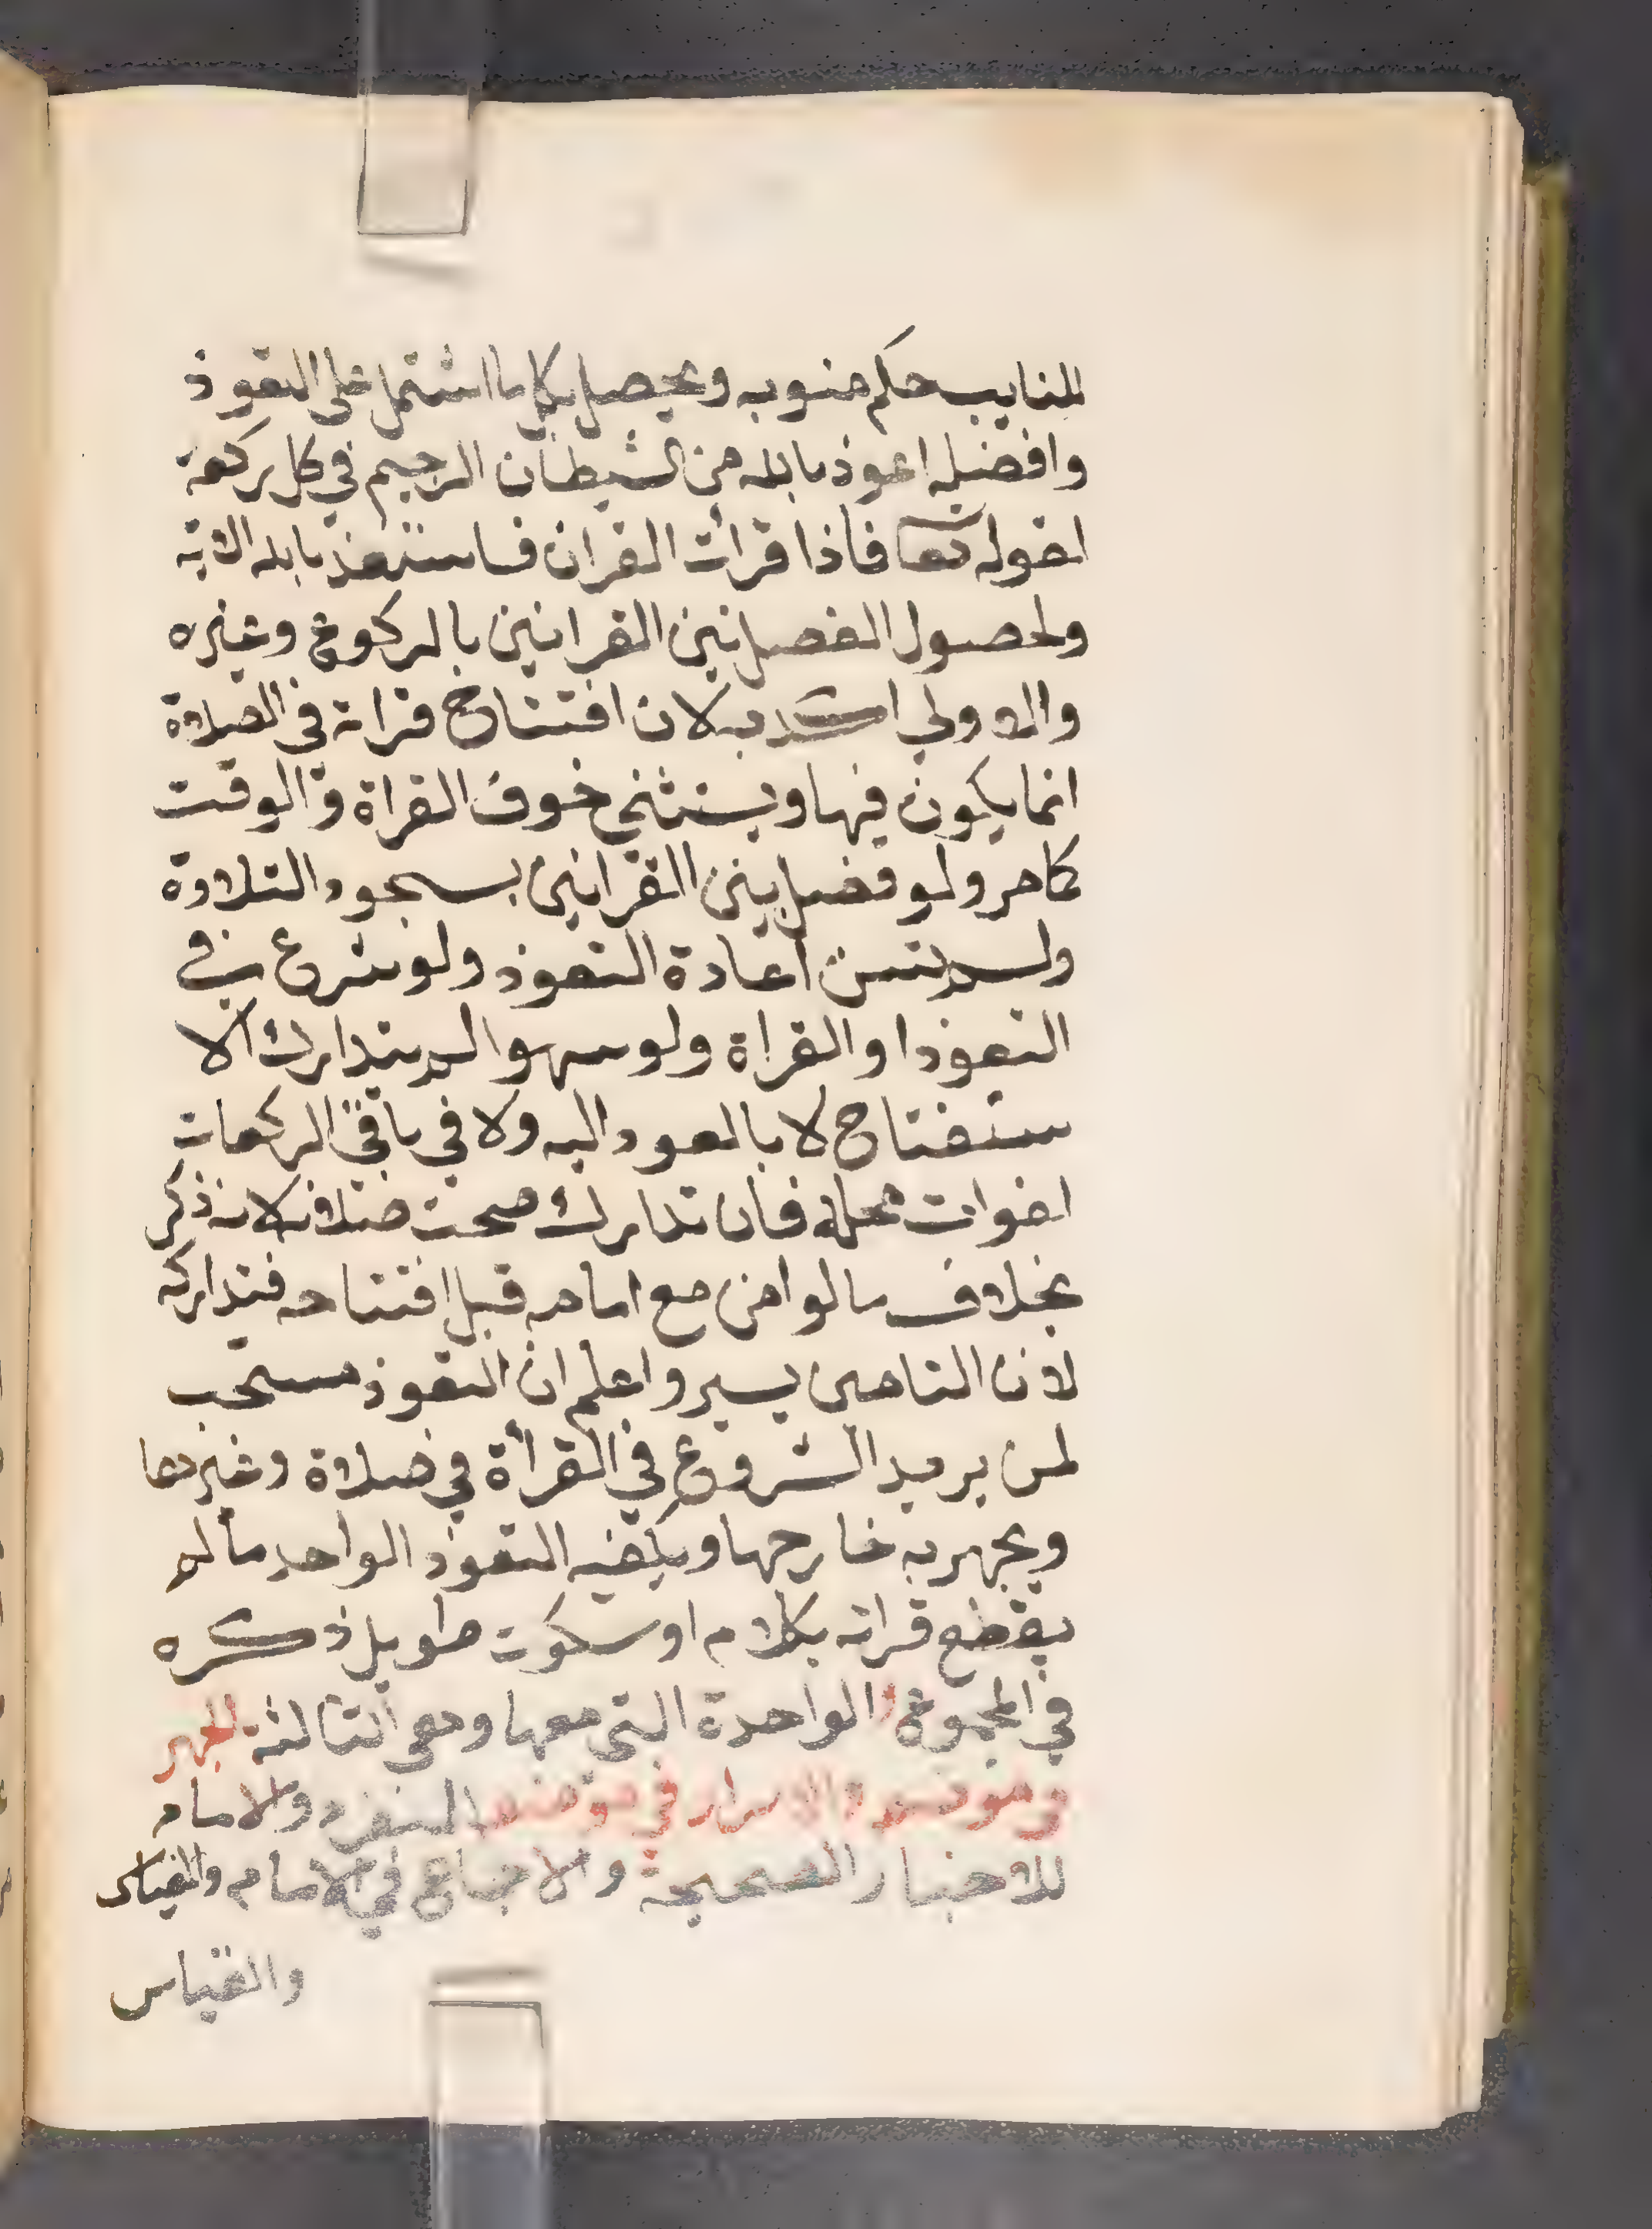 للنايب حكم منوبه ويحصل بكل ما اشتمل على التعوذ
وافضله اعوذ بالله من الشيطان الرجيم في كل ركعة
لقوله تعا فاذا قرأت القران فاستعذ بالله الاية
ولحصول الفصل بين القرانين بالركوع وغيره
والاولي اكد لان افتتاح قراته في الصلاة
انما يكون فيها ويستثني خوف القراة الوقت
كما مر ولو فصل بين القرانين بسجود التلاوة
ولم يسن اعادة التعوذ ولو شرع في
التعوذ او القراة ولو سهوا لم يتدارك الا
ستفتاح لا بالعود اليه ولا في باقي الركعات
لفوات محله فان تدارك صحت صلاته لانه ذكر
بخلاف ما لو امن مع امامه قبل افتتاحه فتداركه
لان التامين يسير واعلم ان التعوذ مستحب
لمن يريد الشروع في القرأة في صلاة وغيرها
ويجهر به خارجها ويكفيه التعوذ الواحد ما لم
يقطع قراته بكلام او سكوت طويل ذكره
في المجموع الواحدة التي معها وهي الثالثة الجهر
والاسرار في موضعه المنفرد والامام
للاخبار الصحيحة والاجماع في الامام والقياس
والقياس